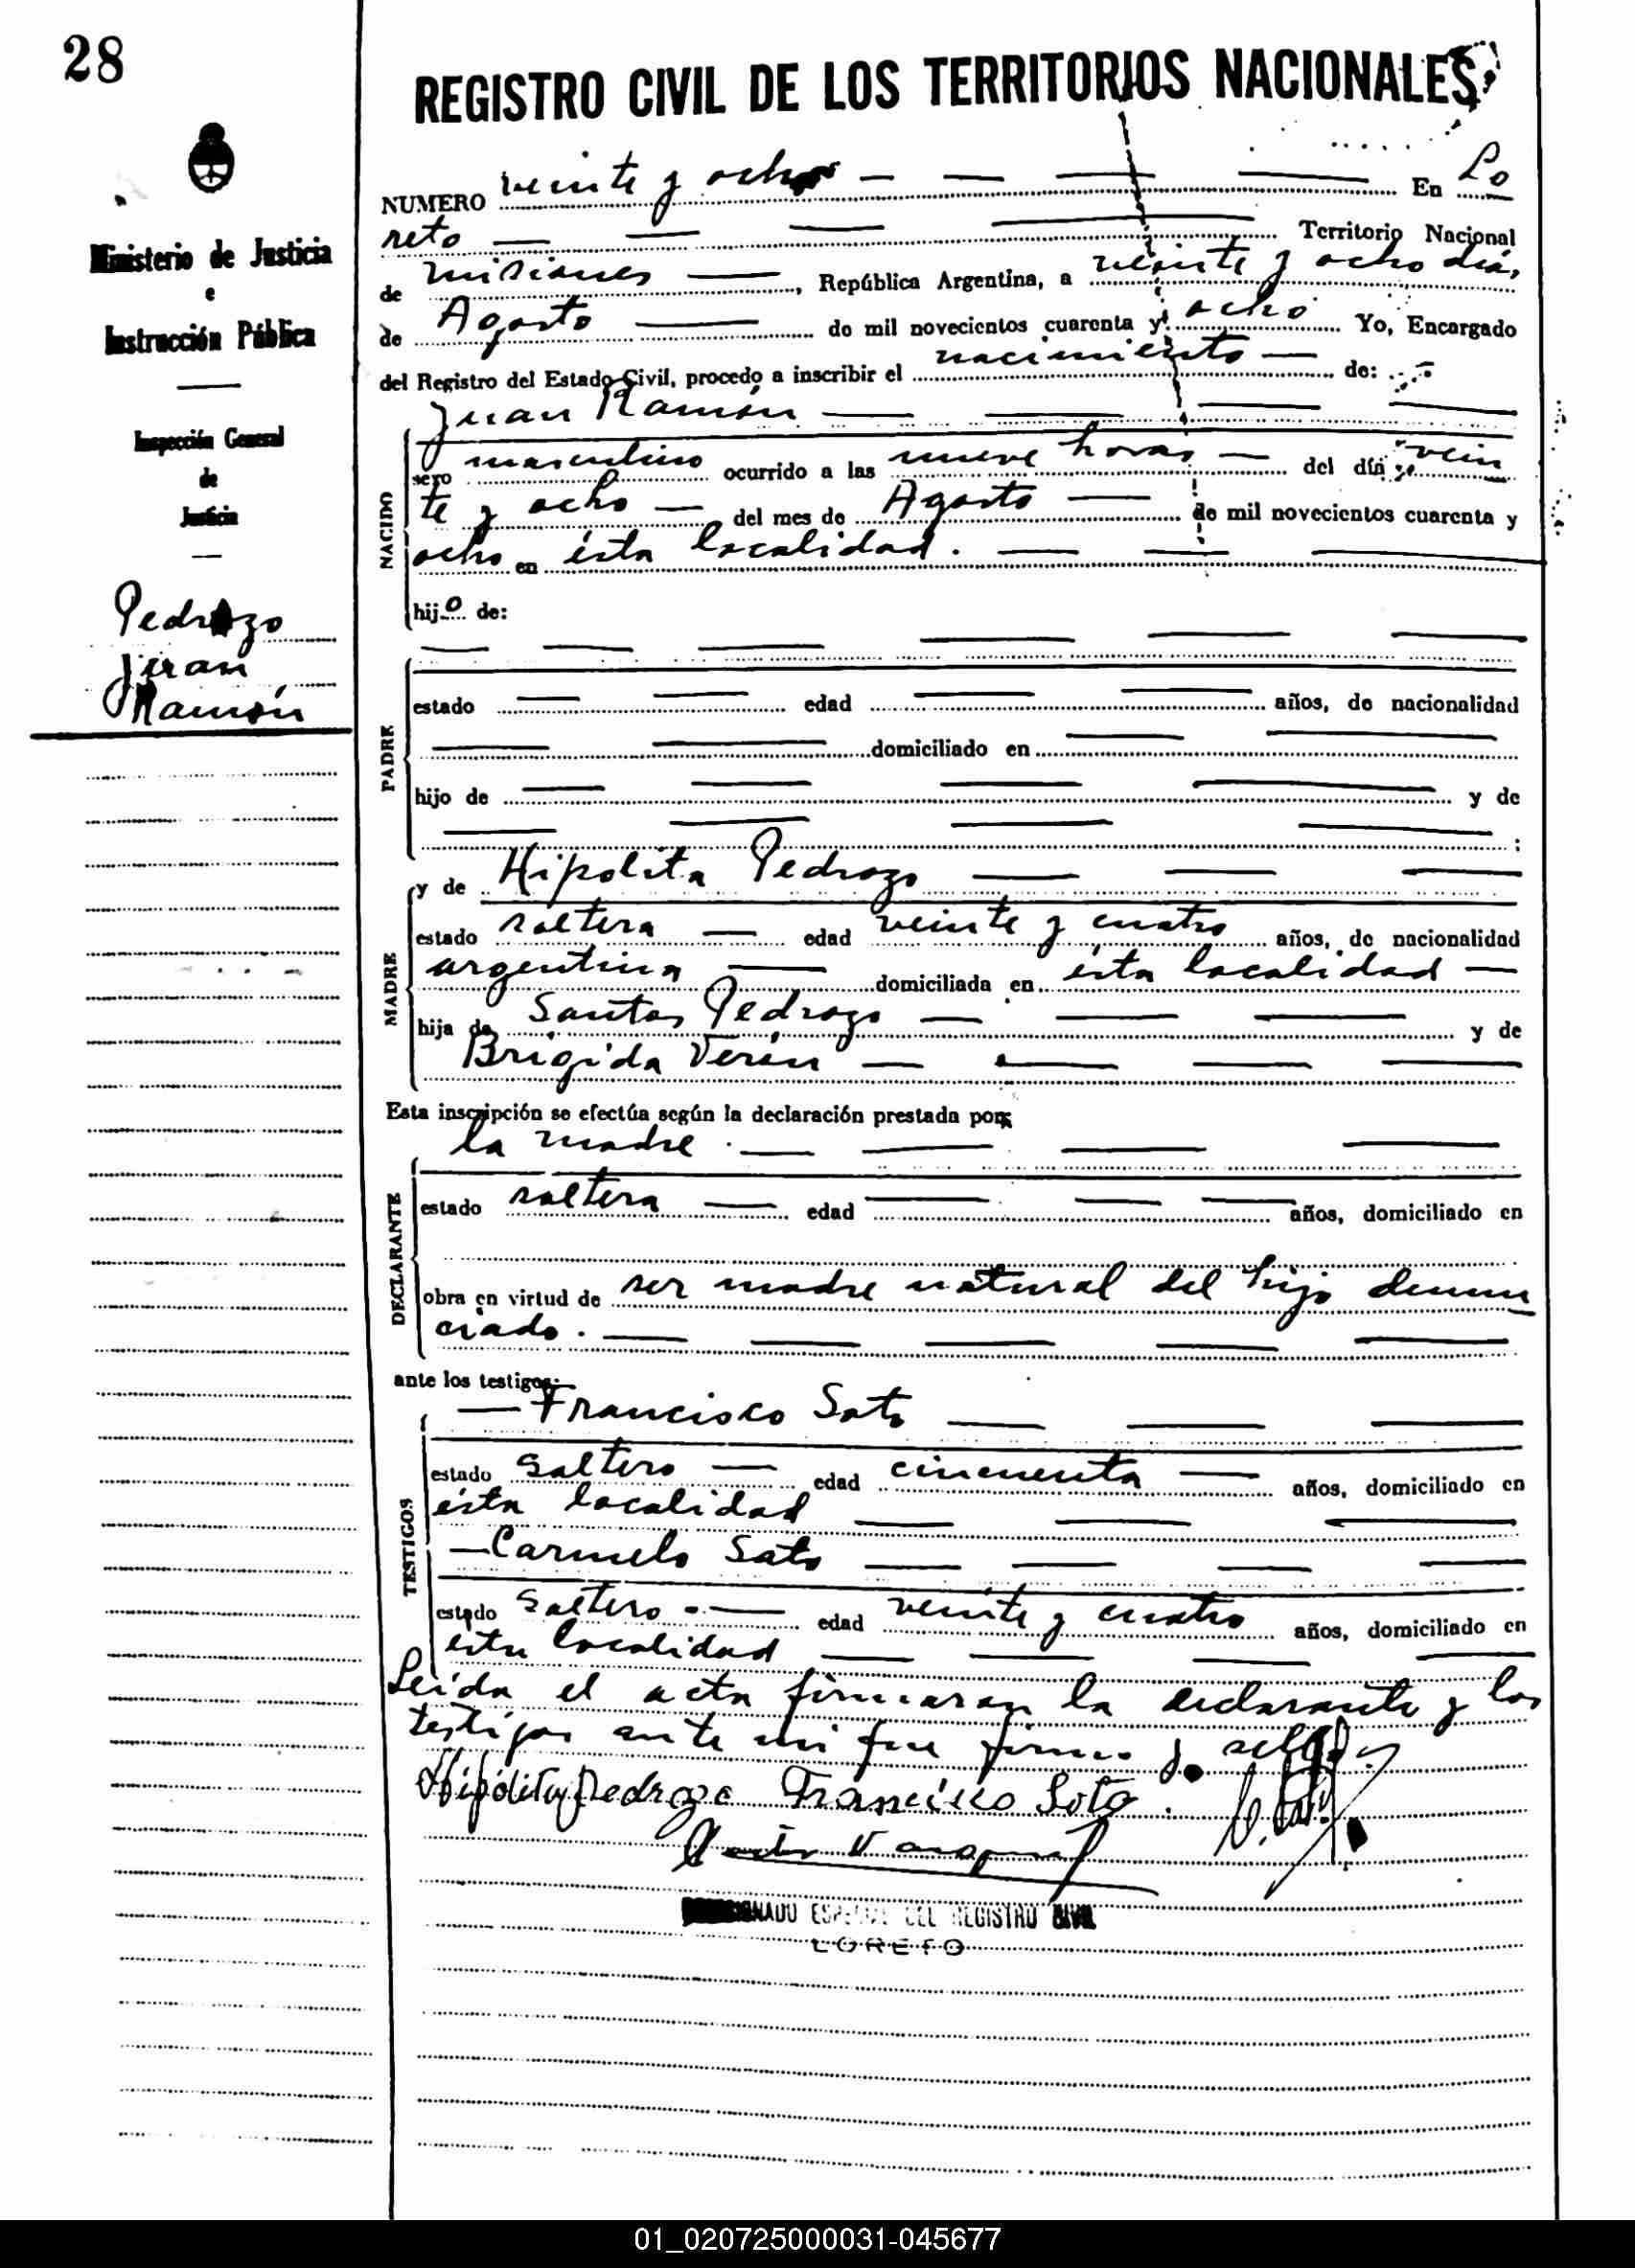 28
REGISTRO CIVIL DE LOS TERRITORIOS NACIONALES
Ministerio de Justicia
e
Instrucción Pública
Inspección General
de
Justicia
Pedrozo
Juan
Ramón
NUMERO veinte y ocho En Lo
reto Territorio Nacional
de Misiones, República Argentina, a veinte y ocho día,
de Agosto de mil novecientos cuarenta y ocho Yo, Encargado
del Registro del Estado Civil, procedo a inscribir el nacimiento de:
Juan Ramón
NACIDO
sexo masculino ocurrido a las nueve horas del día vein
te y ocho del mes de Agosto de mil novecientos cuarenta y
ocho en ésta localidad.
hijo de:
PADRE
estado edad años, de nacionalidad
domiciliado en
hijo de y de
;
MADRE
y de Hipolita Pedrozo
estado soltera edad veinte y cuatro años, de nacionalidad
argentina domiciliada en ésta localidad
hija de Santos Pedrozo y de
Brígida Verón
Esta inscripción se efectúa según la declaración prestada por:
la madre.
DECLARANTE
estado soltera edad años, domiciliado en
obra en virtud de ser madre natural del hijo denun
ciado.
ante los testigos:
Francisco Soto
TESTIGOS
estado Soltero edad cincuenta años, domiciliado en
ésta localidad
Carmelo Soto
estado Soltero edad veinte y cuatro años, domiciliado en
ésta localidad
Leída el acta firmaron la declarante y los
testigos ante mi que firmo y sello
Hipólita Pedrozo Francisco Soto
ESPECIAL DEL REGISTRO CIVIL
LORETO
01_020725000031-045677